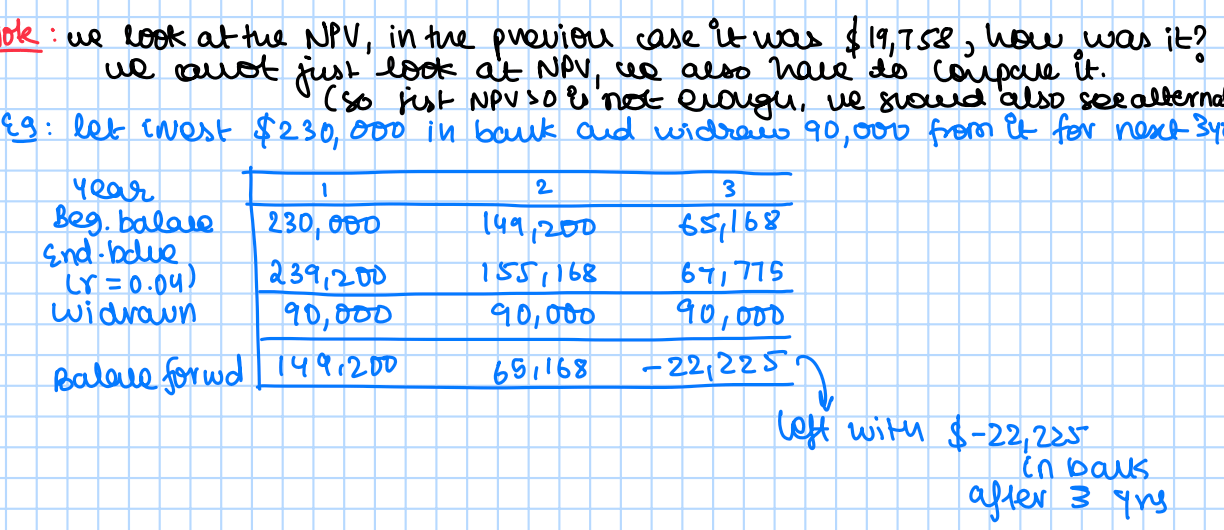 ote : we look at the NPV, in the previou case it was $19,758, how was it?
we cannot just look at NPV, we also have to compare it.
(so just NPV>0 is not enough, we should also see alterna
Eg : let invest $230,000 in bank and widraw 90,000 from it for next 3y
year 1 2 3
Beg. balance 230,000 149,200 65,168
End. balue
(r = 0.04) 239,200 155,168 67,775
widrawn 90,000 90,000 90,000
Balance forwd 149,200 65,168 -22,225
left with $-22,225
in bank
after 3 yrs